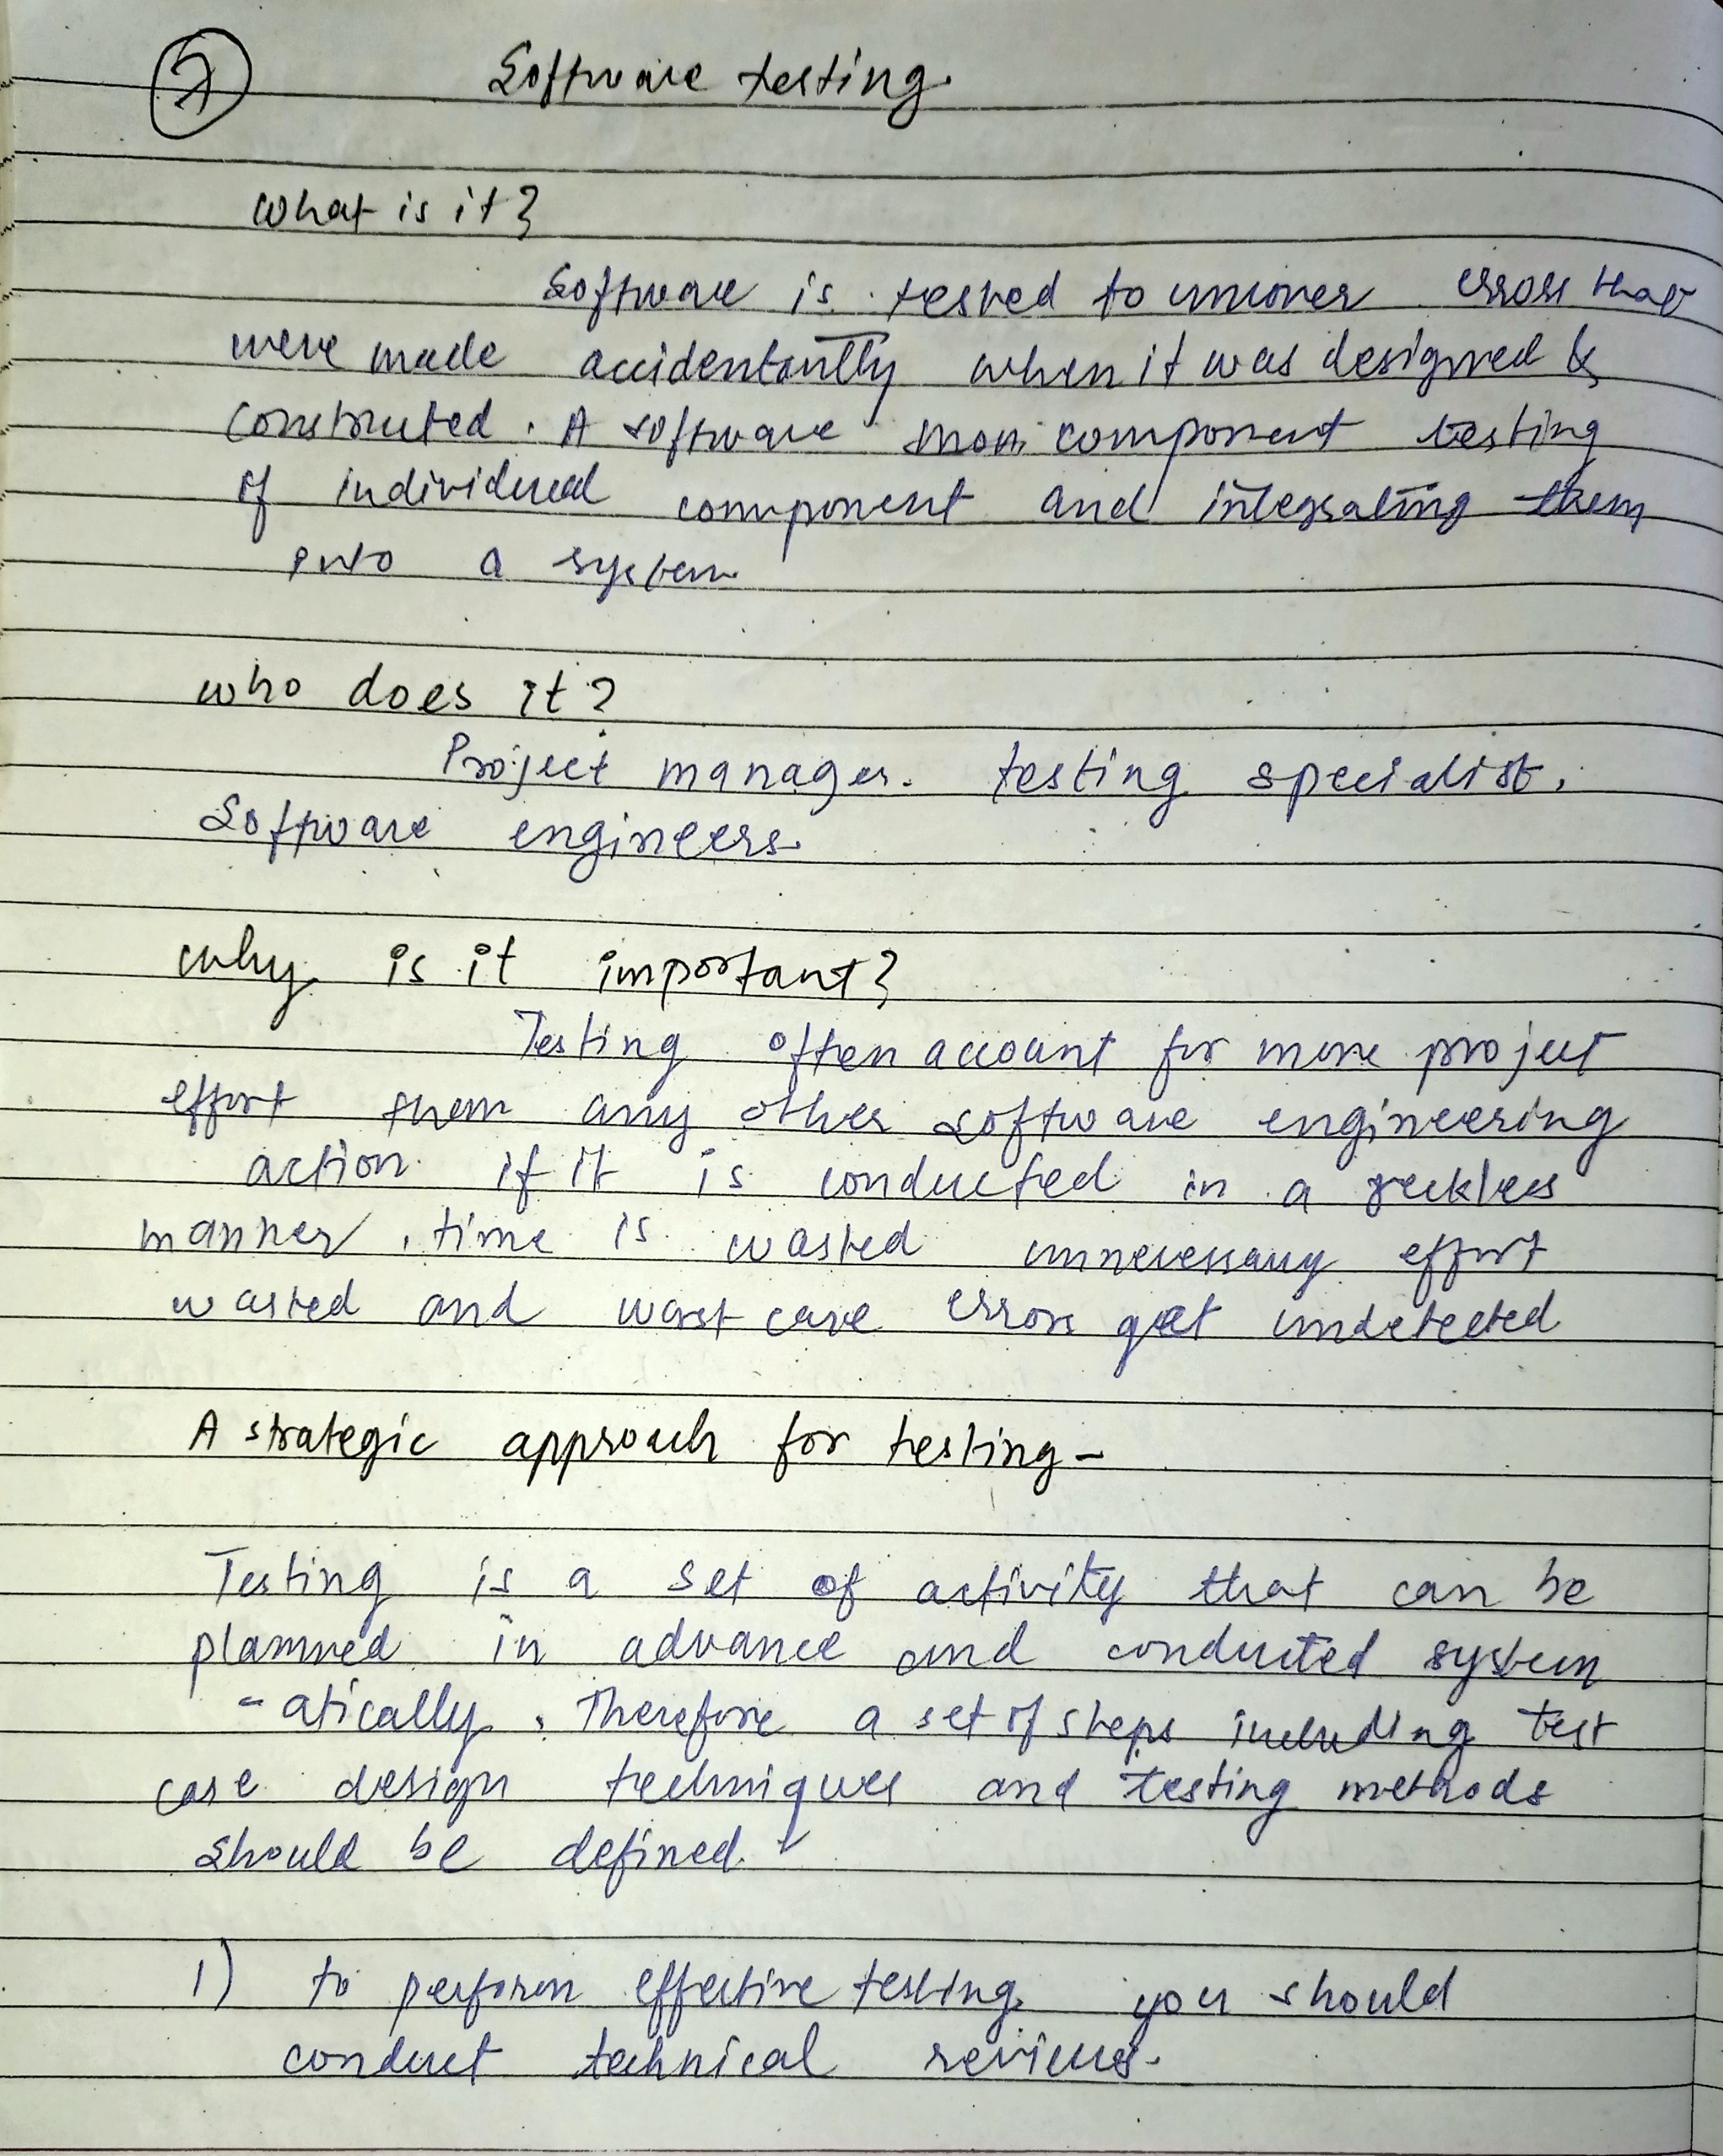 7
Software testing.
what is it?
Software is tested to uncover errors that
were made accidentantly when it was designed &
constructed. A software component testing
of individual component and integrating them
into a system
who does it?
Project manager. testing specialist,
Software engineers.
why is it important?
Testing often account for more project
effort than any other software engineering
action. if it is conducted in a reckless
manner, time is wasted unnecessary effort
wasted and worst case errors get undetected
A strategic approach for testing -
Testing is a set of activity that can be
planned in advance and conducted system
-atically. Therefore a set of steps including test
case design techniques and testing methods
should be defined.
1) to perform effective testing, you should
conduct technical reviews.